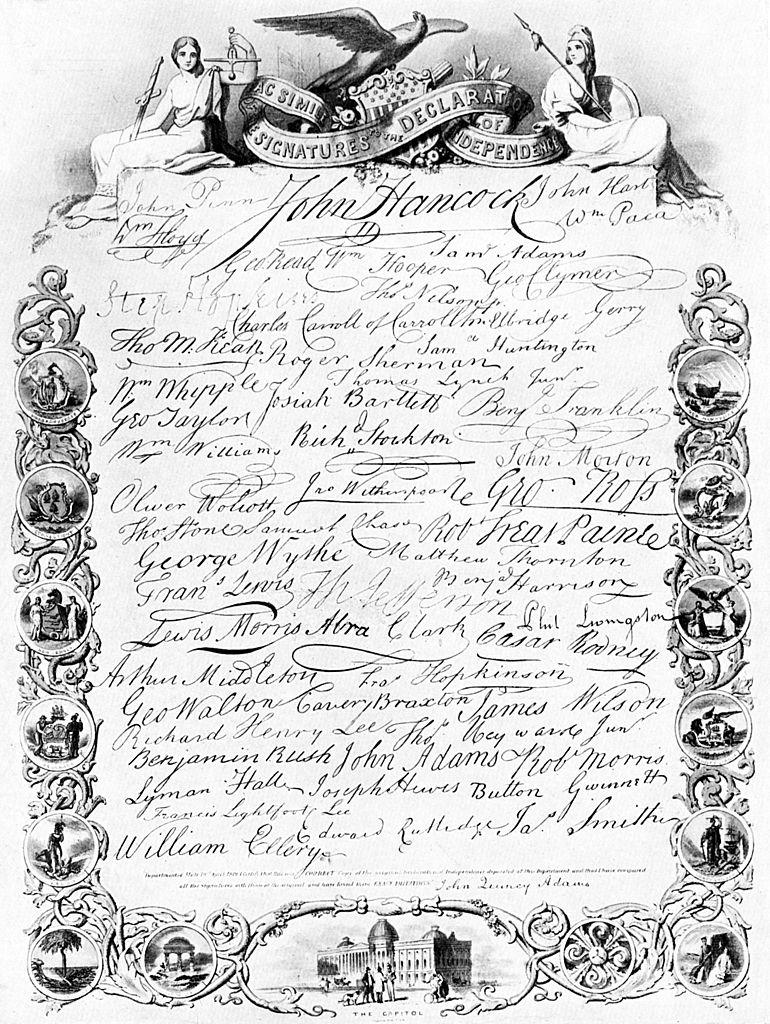 FAC SIMILE
OF THE SIGNATURES TO THE DECLARATION OF INDEPENDENCE
John Penn John Hancock John Hart
Wm Floyd Wm Paca
Geo Read Wm Hooper Saml Adams Geo Clymer
Step Hopkins Thos Nelson jr.
Charles Carroll of Carrollton Elbridge Gerry
Tho M:Kean Roger Sherman Saml Huntington
Wm Whipple Thomas Lynch Junr
Josiah Bartlett Benj Franklin
Geo Taylor
Wm Williams Richd Stockton John Morton
Oliver Wolcott Jno Witherspoon Geo. Ross
Thos. Stone Samuel Chase Robt Treat Paine
George Wythe Matthew Thornton
Frans Lewis Th Jefferson Benj Harrison
Lewis Morris Abra Clark Phil Livingston
Casar Rodney
Arthur Middleton Fras Hopkinson
Geo Walton Carter Braxton James Wilson
Richard Henry Lee Thos Heyward Junr
Benjamin Rush John Adams Robt Morris
Lyman Hall Joseph Hewes Button Gwinnett
Francis Lightfoot Lee
William Ellery Edward Rutledge Jas Smith
CORRECT Copy of the original Declaration of Independence deposited at this Department and that I have compared
all the signatures with those of the original and have found them EXACT IMITATIONS John Quincy Adams
THE CAPITOL